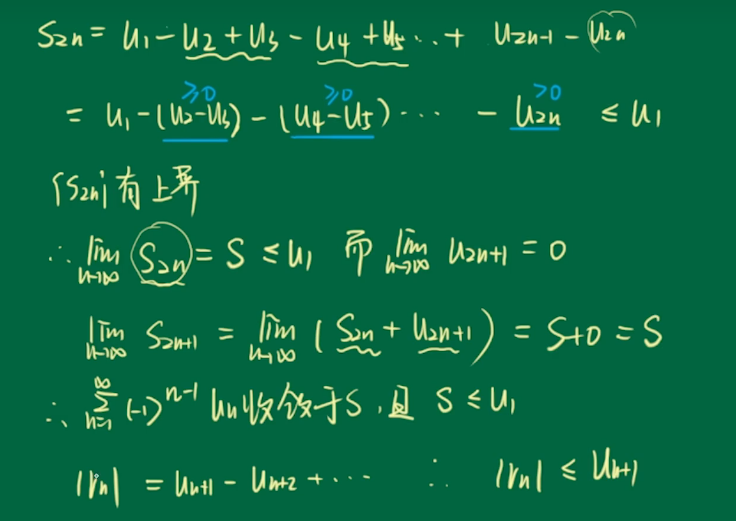 S2n = u1 - u2 + u3 - u4 + u5 ... + u2n-1 - u2n
≥0 ≥0 >0
= u1 - (u2 - u3) - (u4 - u5) ... - u2n ≤ u1
{S2n}有上界
∴ lim n→∞ S2n = S ≤ u1 而 lim n→∞ u2n+1 = 0
lim n→∞ S2n+1 = lim n→∞ (S2n + u2n+1) = S+0 = S
∴ ∞ Σ n=1 (-1)^n-1 un 收敛于S, 且 S ≤ u1
|rn| = un+1 - un+2 + ... ∴ |rn| ≤ un+1